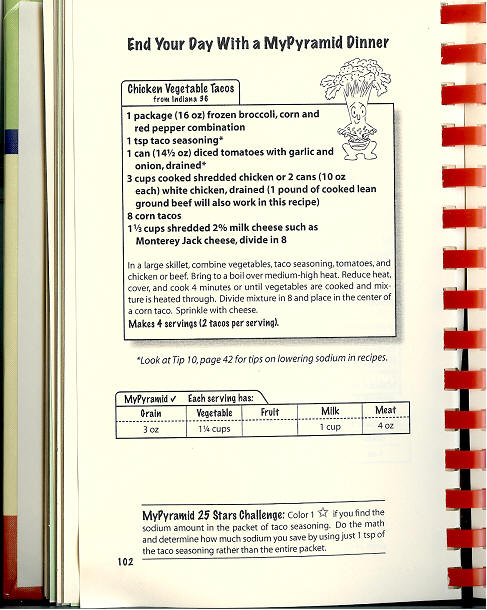 End Your Day With a MyPyramid Dinner
Chicken Vegetable Tacos
from Indiana 36
1 package (16 oz) frozen broccoli, corn and
red pepper combination
1 tsp taco seasoning*
1 can (14½ oz) diced tomatoes with garlic and
onion, drained*
3 cups cooked shredded chicken or 2 cans (10 oz
each) white chicken, drained (1 pound of cooked lean
ground beef will also work in this recipe)
8 corn tacos
1⅓ cups shredded 2% milk cheese such as
Monterey Jack cheese, divide in 8
In a large skillet, combine vegetables, taco seasoning, tomatoes, and
chicken or beef. Bring to a boil over medium-high heat. Reduce heat,
cover, and cook 4 minutes or until vegetables are cooked and mix-
ture is heated through. Divide mixture in 8 and place in the center of
a corn taco. Sprinkle with cheese.
Makes 4 servings (2 tacos per serving).
*Look at Tip 10, page 42 for tips on lowering sodium in recipes.
MyPyramid ✓ Each serving has:
Grain Vegetable Fruit Milk Meat
3 oz 1¼ cups 1 cup 4 oz
MyPyramid 25 Stars Challenge: Color 1 ☆ if you find the
sodium amount in the packet of taco seasoning. Do the math
and determine how much sodium you save by using just 1 tsp of
the taco seasoning rather than the entire packet.
102